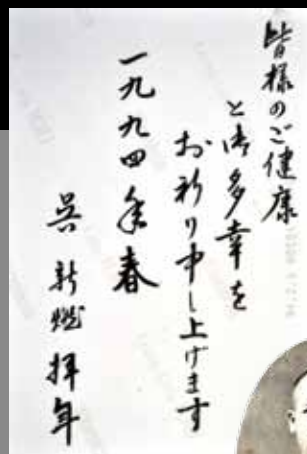 皆様のご健康
と御多幸を
お祈り申し上げます
一九九四年春
呉 新 拝年